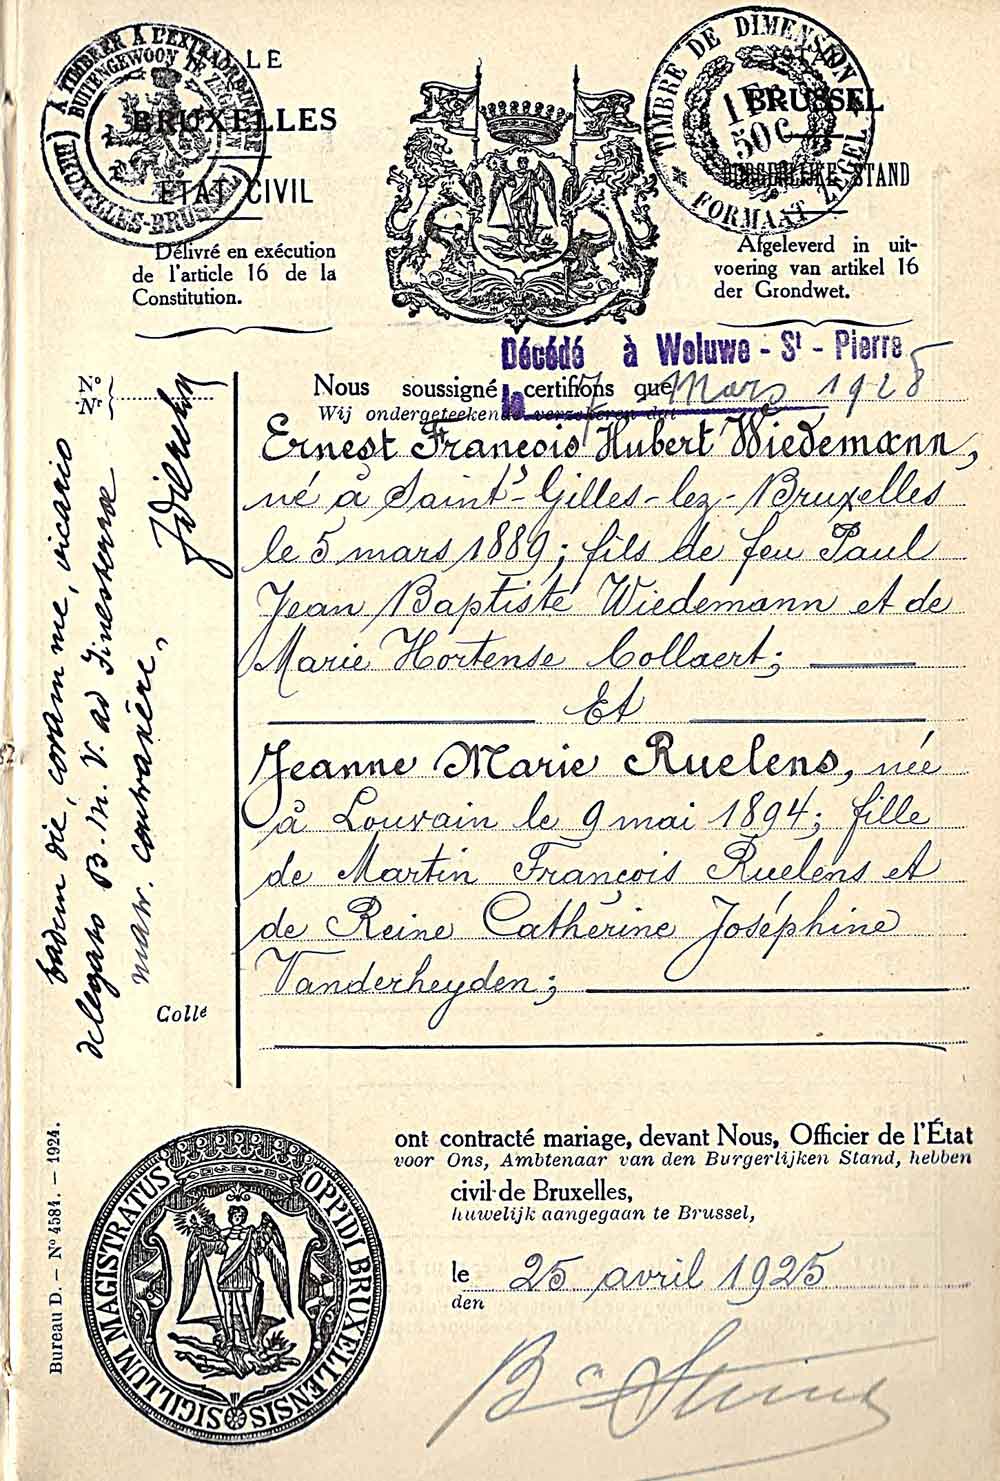 À TIMBRER À L'EXTRAORDINAIRE
BUITENGEWOON TE ZEGELEN
BRUXELLES-BRUSSEL
BRUXELLES
ÉTAT CIVIL
Délivré en exécution
de l'article 16 de la
Constitution.
TIMBRE DE DIMENSION
FORMAAT ZEGEL
1F
50C
BRUSSEL
BURGERLIJKE STAND
Afgeleverd in uit-
voering van artikel 16
der Grondwet.
Décédé à Woluwe - St - Pierre
le 7 Mars 1928
Nº
Nr
Nous soussigné certifions que
Wij ondergeteekende verzekeren dat
Ernest François Hubert Wiedemann,
né à Saint-Gilles-lez-Bruxelles
le 5 mars 1889; fils de feu Paul
Jean Baptiste Wiedemann et de
Marie Hortense Collaert;
Et
Jeanne Marie Ruelens, née
à Louvain le 9 mai 1894; fille
de Martin François Ruelens et
de Reine Catherine Joséphine
Vanderheyden;
eadem die, coram me, vicario
delegato B. M. V. ad Finisterrae
matr. contraxere,
Collé
ont contracté mariage, devant Nous, Officier de l'État
voor Ons, Ambtenaar van den Burgerlijken Stand, hebben
civil de Bruxelles,
huwelijk aangegaan te Brussel,
le 25 avril 1925
den
SIGILLUM MAGISTRATUS OPPIDI BRUXELLENSIS
Bureau D. — Nº 4584. — 1924.